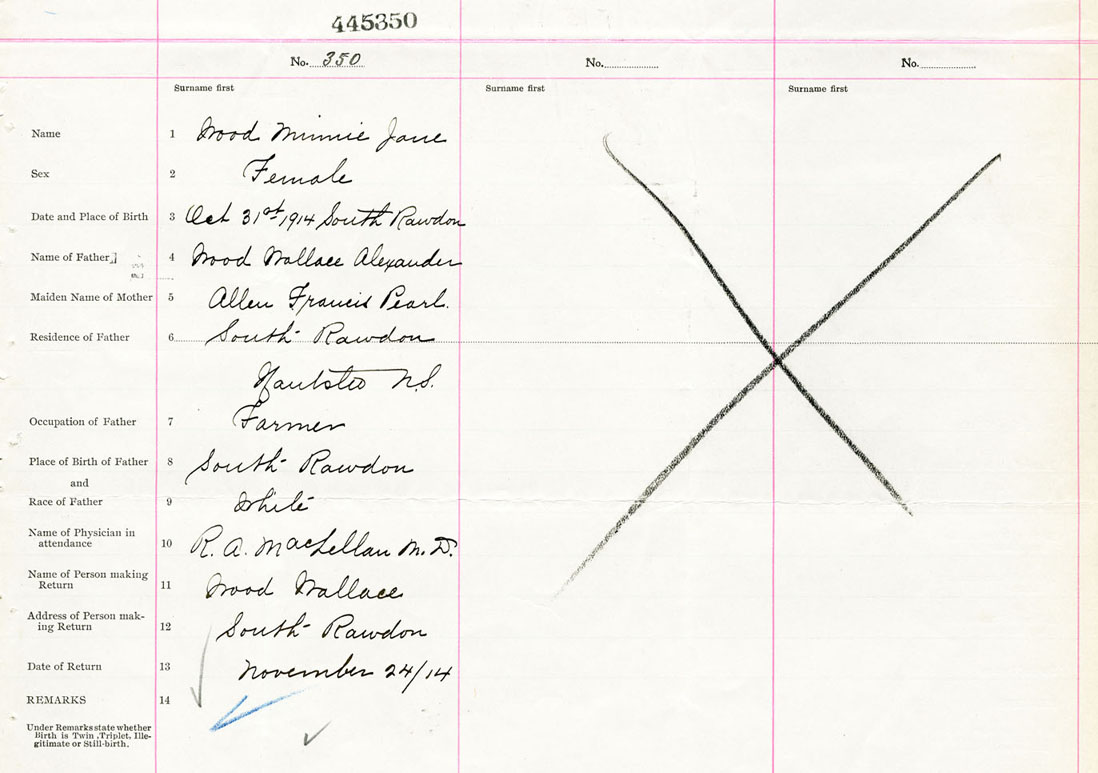 445350
No. 350 No. No.
Surname first Surname first Surname first
Name 1 Wood Minnie Jane
Sex 2 Female
Date and Place of Birth 3 Oct 31st 1914 South Rawdon
Name of Father 4 Wood Wallace Alexander
Maiden Name of Mother 5 Allen Francis Pearl.
Residence of Father 6 South Rawdon
N.S.
Occupation of Father 7 Farmer
Place of Birth of Father 8 South Rawdon
and
Race of Father 9 White
Name of Physician in
attendance 10 R. A. MacLellan M.D.
Name of Person making
Return 11 Wood Wallace
Address of Person mak-
ing Return 12 South Rawdon
Date of Return 13 November 24/14
REMARKS 14
Under Remarks state whether
Birth is Twin, Triplet, Ille-
gitimate or Still-birth.